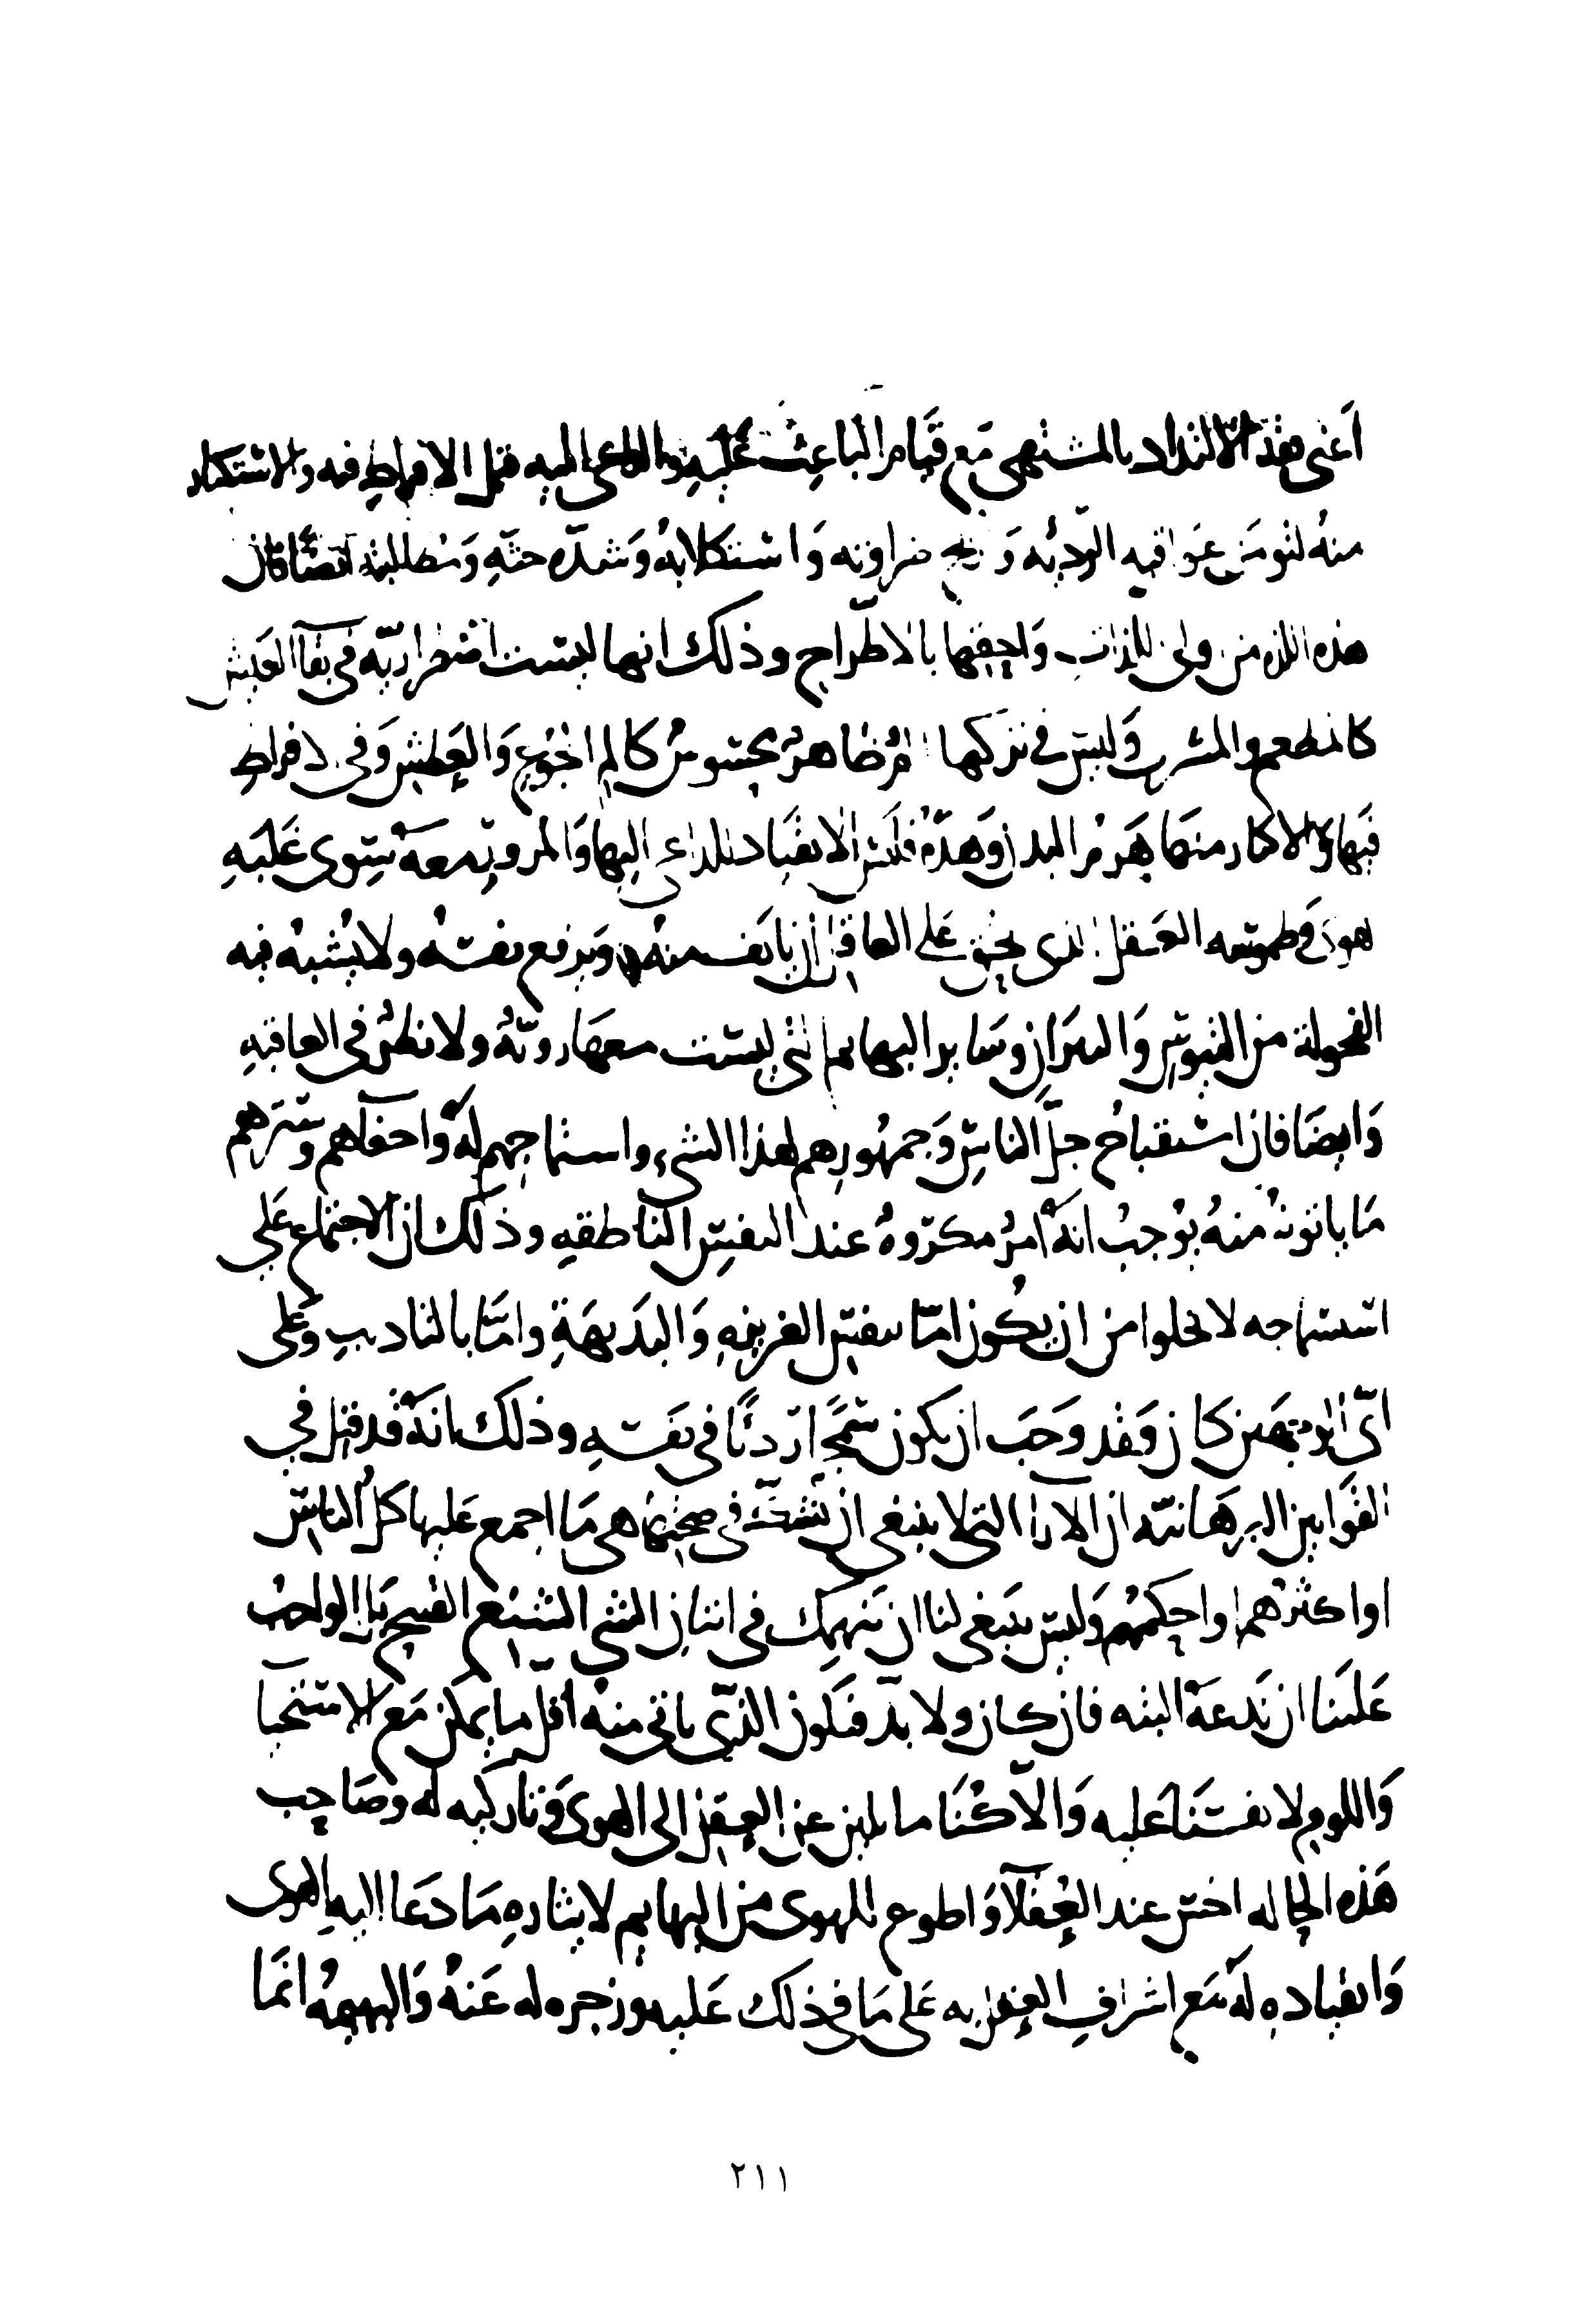 أعني فقد الالتذاذ بالمشتهى مع قيام الباعث عليه والداعي إليه قبل الافراط فيه والاستكثار
منه لتؤمن عواقبه الرديه و ضراوته واستكلابه وشدة حثه ومطالبته ايضا فان
هذه اللذه من اولى اللذات واحقها بالاطراح وذلك انها ليست اضطراريه في بقآ العيش
كالمطعم والمشرب وليس في تركها الم ظاهر محسوس كالم الجوع والعطش وفي الافراط
فيها والاكثار منها هدم البدن وهده فليس الانقياد للداعي اليها والمرور معه سوى غلبه
الهوى وطمسه العقل الذي يحق على العاقل ان يانف منه ويرفع نفسه ولا يشبه فيه
الفحولة من التيوس والثيران وساير البهايم التي ليست معها رويّة ولا نظر في العاقبه
وايضا فان استقباح جلّ الناس وجمهورهم لهذا الشيء واستسماجهم له واخفآهم وسترهم
ما ياتونه منه يوجب انه امر مكروه عند النفس الناطقه وذلك ان الاجتماع علي
استسماجه لا يخلوا من ان يكون امّا بنفس الغريزه والبديهة وامّا بالتاديب وعلى
ايّ الوجهين كان فقد وجب ان يكون سمجا ردئا في نفسه وذلك انه قد قيل في
القوانين البرهانيّه ان الارا التي لا ينبغي ان نشكّ في صحتها هي ما اجمع عليها كل الناس
او اكثرهم او احكمهم وليس ينبغي لنا ان ننهمك في اتيان الشي الشنيع القبيح بل الواجب
علينا ان ندعه البته فان كان ولا بدّ فيكون الذي ناتي منه اقل ما يمكن مع الاستحيآ
واللوم لانفسنا عليه والاّ كنا مايلين عن العقل الى الهوى وتاركيه له وصاحب
هذه الحاله اخس عند العقلآ واطوع للهوى من البهايم لايثاره ما دعا اليه الهوى
وانقياده له مع اشراف العقل به على ما في ذلك عليه وزجره له عنه والبهيمه انما
٢١١